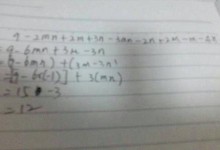 9 - 2mn + 2m + 3n - 3mn - 2n + 2m - n - 
= 9 - 6mn + 3m - 3n
= (9 - 6mn) + (3m - 3n)
= [9 - 6x(-1)] + 3(mn)
= 15 - 3
= 12